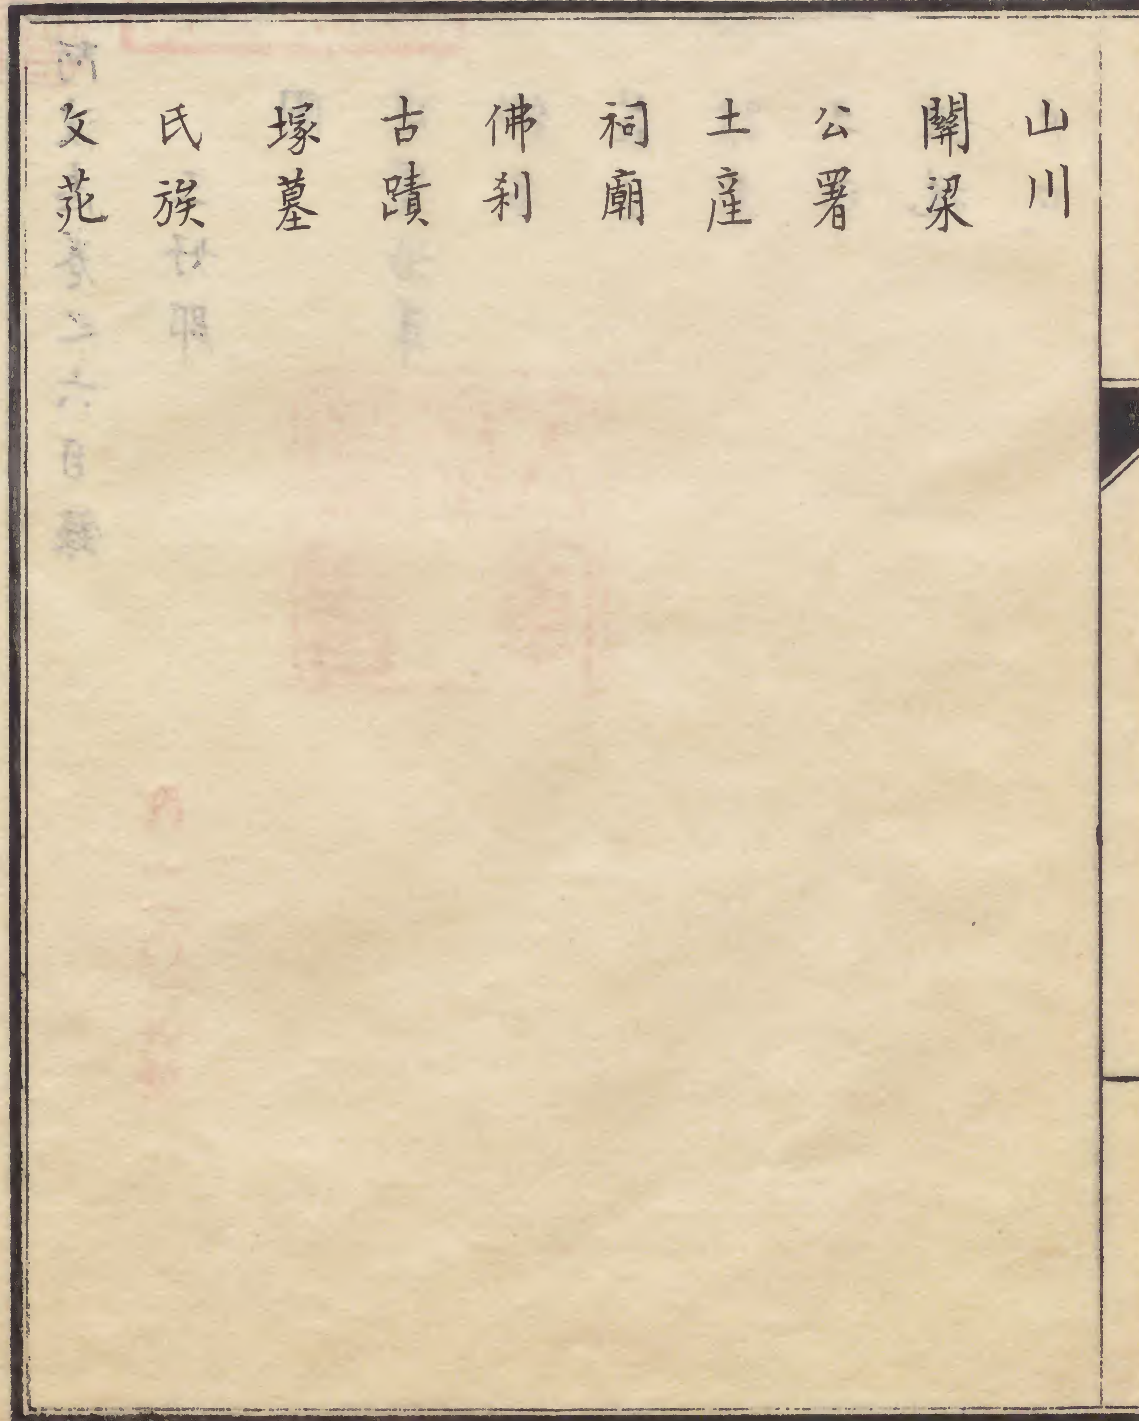 山川
關梁
公署
土産
祠廟
佛刹
古蹟
塚墓
氏族
文苑